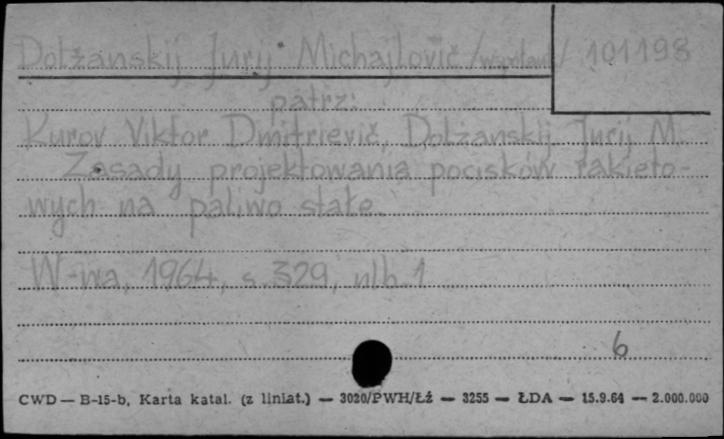 Dolžanskij Jurij Michajlovič /współaut/ 101198
patrz:
Kurov Viktor Dmitrievič, Dolžanskij Jurij M.
Zasady projektowania pocisków rakieto-
wych na paliwo stałe.
W-wa, 1964, s. 329, nlb. 1
6
CWD — B-15-b, Karta katal. (z liniat.) — 3020/PWH/Łź — 3255 — ŁDA — 15.9.64 — 2.000.000